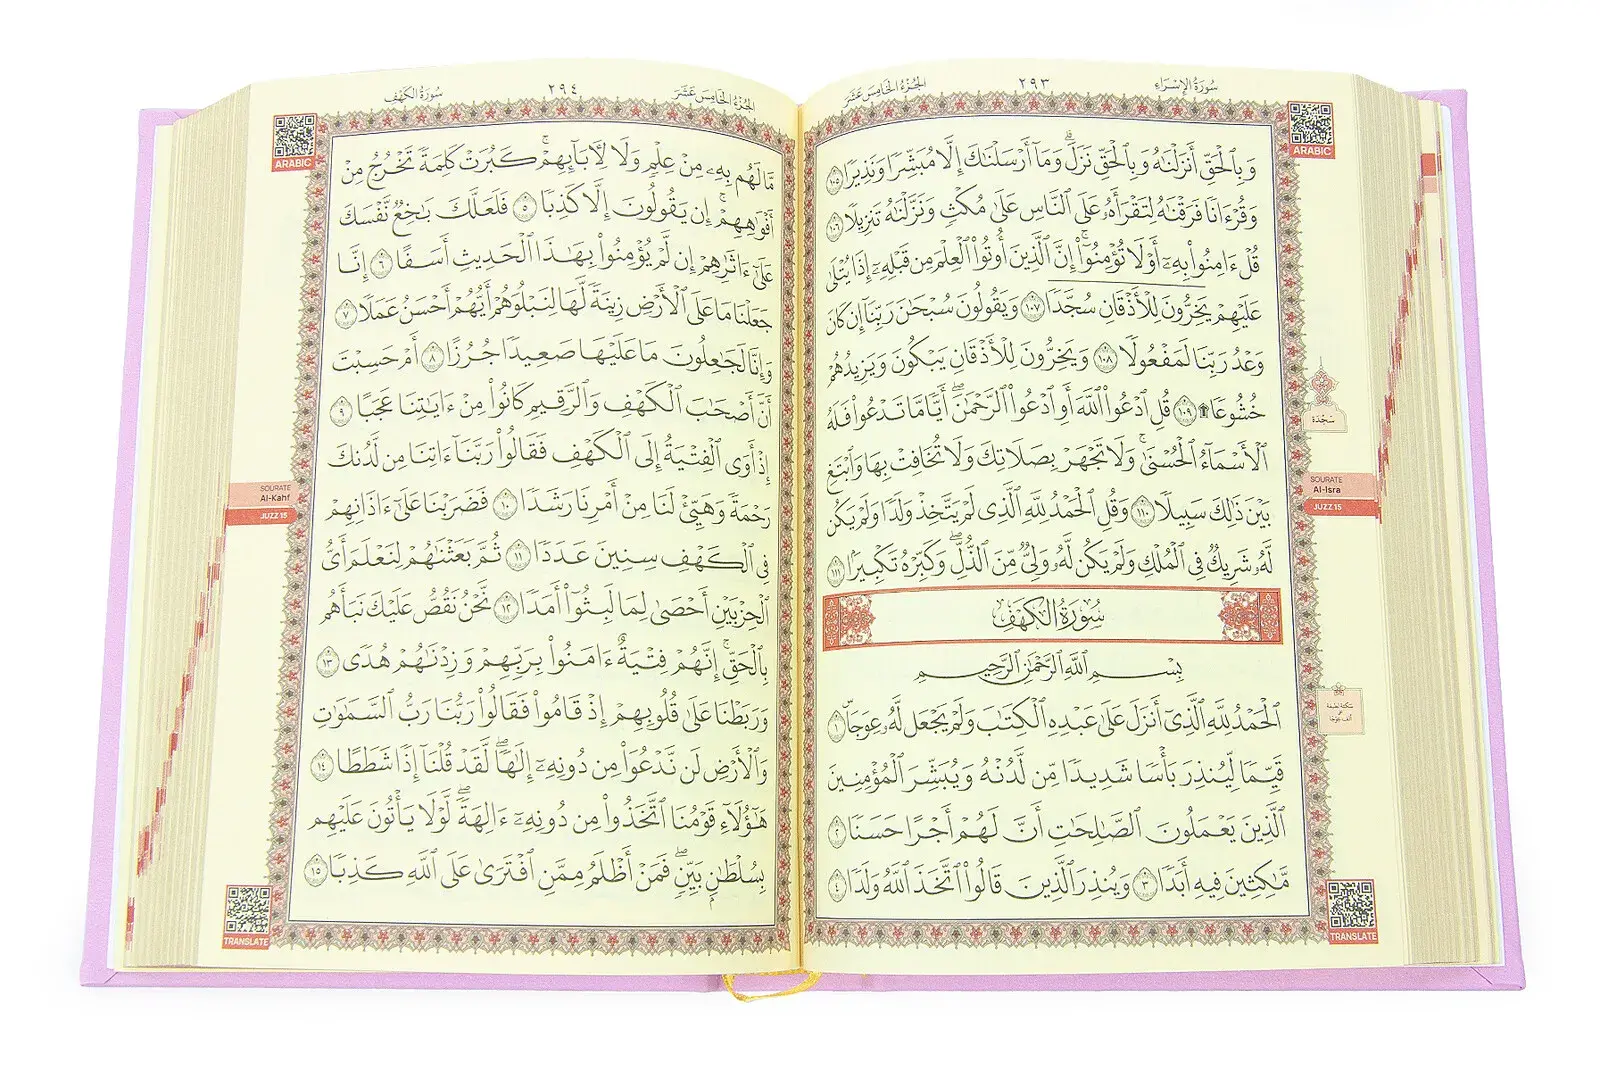 سُورَةُ الإِسْرَاءِ
٢٩٣
الجُزْءُ الخَامِسَ عَشَرَ
ARABIC
وَبِٱلْحَقِّ أَنزَلْنَٰهُ وَبِٱلْحَقِّ نَزَلَۗ وَمَآ أَرْسَلْنَٰكَ إِلَّا مُبَشِّرًا وَنَذِيرًا ١٠٥
وَقُرْءَانًا فَرَقْنَٰهُ لِتَقْرَأَهُۥ عَلَى ٱلنَّاسِ عَلَىٰ مُكْثٍ وَنَزَّلْنَٰهُ تَنزِيلًا ١٠٦
قُلْ ءَامِنُوا۟ بِهِۦٓ أَوْ لَا تُؤْمِنُوٓا۟ۚ إِنَّ ٱلَّذِينَ أُوتُوا۟ ٱلْعِلْمَ مِن قَبْلِهِۦٓ إِذَا يُتْلَىٰ
عَلَيْهِمْ يَخِرُّونَ لِلْأَذْقَانِ سُجَّدًا ١٠٧ وَيَقُولُونَ سُبْحَٰنَ رَبِّنَآ إِن كَانَ
وَعْدُ رَبِّنَا لَمَفْعُولًا ١٠٨ وَيَخِرُّونَ لِلْأَذْقَانِ يَبْكُونَ وَيَزِيدُهُمْ
خُشُوعًا ۩ ١٠٩ قُلِ ٱدْعُوا۟ ٱللَّهَ أَوِ ٱدْعُوا۟ ٱلرَّحْمَٰنَۖ أَيًّا مَّا تَدْعُوا۟ فَلَهُ
سَجْدَة
ٱلْأَسْمَآءُ ٱلْحُسْنَىٰۚ وَلَا تَجْهَرْ بِصَلَاتِكَ وَلَا تُخَافِتْ بِهَا وَٱبْتَغِ
بَيْنَ ذَٰلِكَ سَبِيلًا ١١٠ وَقُلِ ٱلْحَمْدُ لِلَّهِ ٱلَّذِى لَمْ يَتَّخِذْ وَلَدًا وَلَمْ يَكُن
SOURATE
Al-Isra
JUZZ 15
لَّهُۥ شَرِيكٌ فِى ٱلْمُلْكِ وَلَمْ يَكُن لَّهُۥ وَلِىٌّ مِّنَ ٱلذُّلِّۖ وَكَبِّرْهُ تَكْبِيرًۢا ١١١
سُورَةُ الكَهْفِ
بِسْمِ ٱللَّهِ ٱلرَّحْمَٰنِ ٱلرَّحِيمِ
ٱلْحَمْدُ لِلَّهِ ٱلَّذِىٓ أَنزَلَ عَلَىٰ عَبْدِهِ ٱلْكِتَٰبَ وَلَمْ يَجْعَل لَّهُۥ عِوَجَاۜ ١
سكتة لطيفة
على
ألف عوجا
قَيِّمًا لِّيُنذِرَ بَأْسًا شَدِيدًا مِّن لَّدُنْهُ وَيُبَشِّرَ ٱلْمُؤْمِنِينَ
ٱلَّذِينَ يَعْمَلُونَ ٱلصَّٰلِحَٰتِ أَنَّ لَهُمْ أَجْرًا حَسَنًا ٢
مَّٰكِثِينَ فِيهِ أَبَدًا ٣ وَيُنذِرَ ٱلَّذِينَ قَالُوا۟ ٱتَّخَذَ ٱللَّهُ وَلَدًا ٤
TRANSLATE
الجُزْءُ الخَامِسَ عَشَرَ
٢٩٤
سُورَةُ الكَهْفِ
ARABIC
مَّا لَهُم بِهِۦ مِنْ عِلْمٍ وَلَا لِءَابَآئِهِمْۚ كَبُرَتْ كَلِمَةً تَخْرُجُ مِنْ
أَفْوَٰهِهِمْۚ إِن يَقُولُونَ إِلَّا كَذِبًا ٥ فَلَعَلَّكَ بَٰخِعٌ نَّفْسَكَ
عَلَىٰٓ ءَاثَٰرِهِمْ إِن لَّمْ يُؤْمِنُوا۟ بِهَٰذَا ٱلْحَدِيثِ أَسَفًا ٦ إِنَّا
جَعَلْنَا مَا عَلَى ٱلْأَرْضِ زِينَةً لَّهَا لِنَبْلُوَهُمْ أَيُّهُمْ أَحْسَنُ عَمَلًا ٧
وَإِنَّا لَجَٰعِلُونَ مَا عَلَيْهَا صَعِيدًا جُرُزًا ٨ أَمْ حَسِبْتَ
أَنَّ أَصْحَٰبَ ٱلْكَهْفِ وَٱلرَّقِيمِ كَانُوا۟ مِنْ ءَايَٰتِنَا عَجَبًا ٩
إِذْ أَوَى ٱلْفِتْيَةُ إِلَى ٱلْكَهْفِ فَقَالُوا۟ رَبَّنَآ ءَاتِنَا مِن لَّدُنكَ
رَحْمَةً وَهَيِّئْ لَنَا مِنْ أَمْرِنَا رَشَدًا ١٠ فَضَرَبْنَا عَلَىٰٓ ءَاذَانِهِمْ
SOURATE
Al-Kahf
JUZZ 15
فِى ٱلْكَهْفِ سِنِينَ عَدَدًا ١١ ثُمَّ بَعَثْنَٰهُمْ لِنَعْلَمَ أَىُّ
ٱلْحِزْبَيْنِ أَحْصَىٰ لِمَا لَبِثُوٓا۟ أَمَدًا ١٢ نَّحْنُ نَقُصُّ عَلَيْكَ نَبَأَهُم
بِٱلْحَقِّۚ إِنَّهُمْ فِتْيَةٌ ءَامَنُوا۟ بِرَبِّهِمْ وَزِدْنَٰهُمْ هُدًى ١٣
وَرَبَطْنَا عَلَىٰ قُلُوبِهِمْ إِذْ قَامُوا۟ فَقَالُوا۟ رَبُّنَا رَبُّ ٱلسَّمَٰوَٰتِ
وَٱلْأَرْضِ لَن نَّدْعُوَا۟ مِن دُونِهِۦٓ إِلَٰهًاۖ لَّقَدْ قُلْنَآ إِذًا شَطَطًا ١٤
هَٰٓؤُلَآءِ قَوْمُنَا ٱتَّخَذُوا۟ مِن دُونِهِۦٓ ءَالِهَةًۖ لَّوْلَا يَأْتُونَ عَلَيْهِم
بِسُلْطَٰنٍۭ بَيِّنٍۖ فَمَنْ أَظْلَمُ مِمَّنِ ٱفْتَرَىٰ عَلَى ٱللَّهِ كَذِبًا ١٥
TRANSLATE